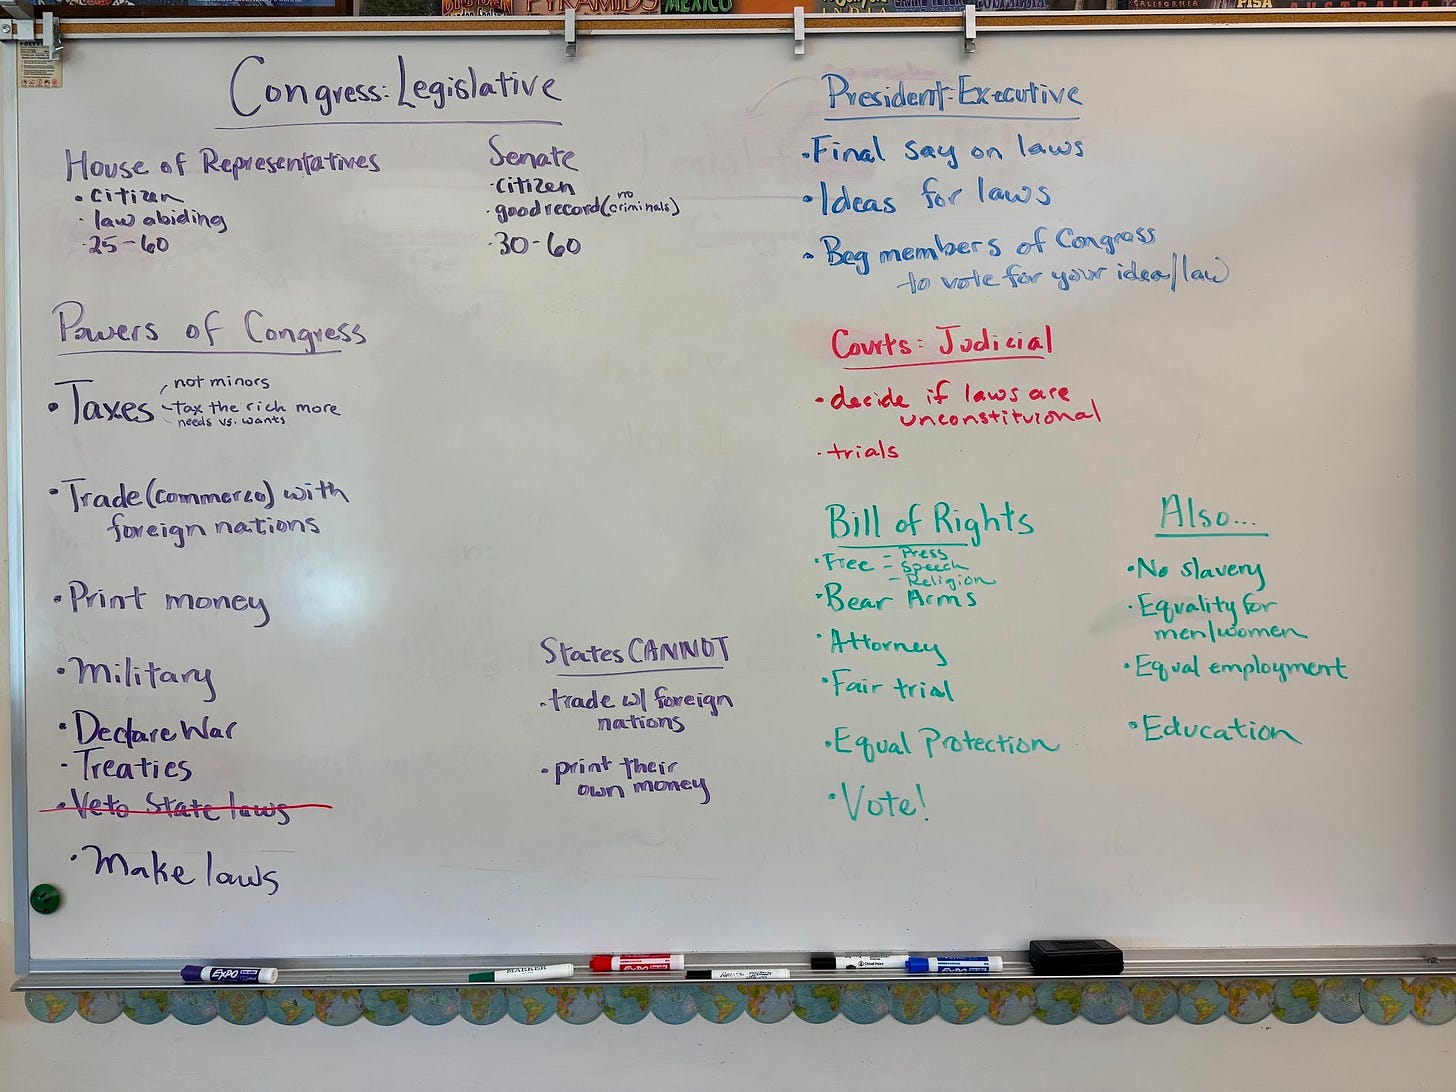 PYRAMIDS
MEXICO
CALIFORNIA
PISA
AUSTRALIA
Congress: Legislative
House of Representatives
• citizen
• law abiding
• 25-60
Senate
• citizen
• good record (no criminals)
• 30-60
Powers of Congress
• Taxes
- not minors
- tax the rich more
- needs vs. wants
• Trade (commerce) with
foreign nations
• Print money
• Military
• Declare War
• Treaties
• Veto State laws
• Make laws
States CANNOT
• trade w/ foreign
nations
• print their
own money
President: Executive
• Final say on laws
• Ideas for laws
• Beg members of Congress
to vote for your idea/law
Courts: Judicial
• decide if laws are
unconstitutional
• trials
Bill of Rights
• Free - Press
- Speech
- Religion
• Bear Arms
• Attorney
• Fair trial
• Equal Protection
• Vote!
Also...
• No slavery
• Equality for
men/women
• Equal employment
• Education
EXPO
MARKER
EXPO
EXPO